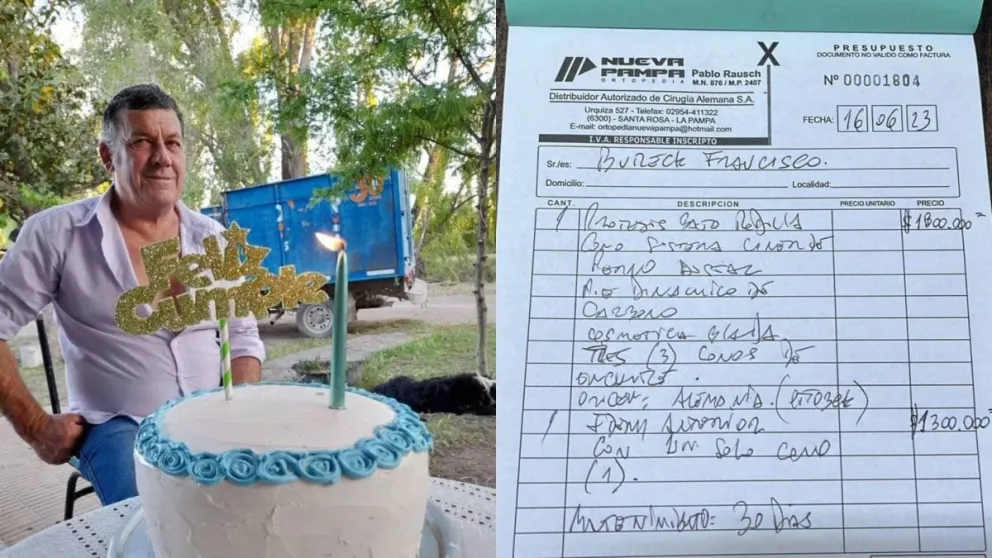 FELIZ
CUMPLE
NUEVA
PAMPA
ORTOPEDIA
Pablo Rausch
M.N. 876 / M.P. 2407
Distribuidor Autorizado de Cirugía Alemana S.A.
Urquiza 527 - Telefax: 02954-411322
(6300) - SANTA ROSA - LA PAMPA
E-mail: ortopedianuevapampa@hotmail.com
I.V.A. RESPONSABLE INSCRIPTO
X
PRESUPUESTO
DOCUMENTO NO VALIDO COMO FACTURA
Nº 00001804
FECHA: 16 06 23
Sr/es: Francisco.
Domicilio: Localidad:
CANT. DESCRIPCION PRECIO UNITARIO PRECIO
1 Protesis Bajo Rodilla $1800.000=
Como Sistema
Pie Dinamico de
Carbono
Cosmetica
Tres (3) Conos de
Origen: Alemania.
1 Idem Anterior $1300.000=
Con un solo cono
(1).
30 Dias